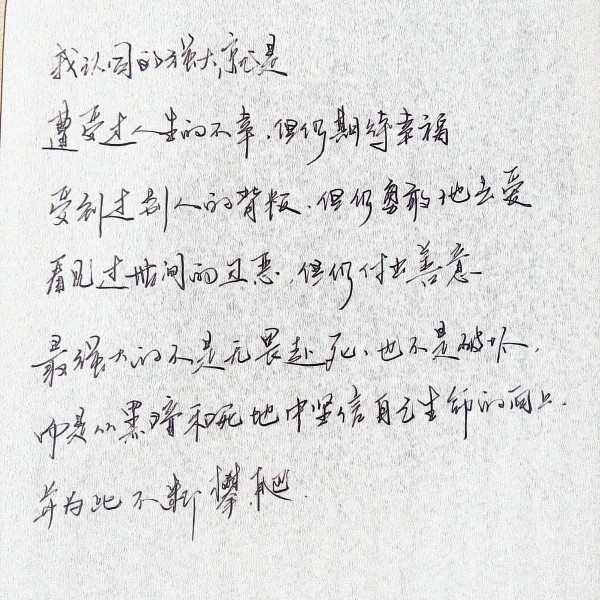 我认同的强大，就是
遭受过人生的不幸，但仍期待幸福
受到过别人的背叛，但仍勇敢地去爱
看见过世间的丑恶，但仍付出善意
最强大的不是无畏赴死、也不是破坏，
而是从黑暗和死地中坚信自己生命的向上，
并为此不断攀爬.